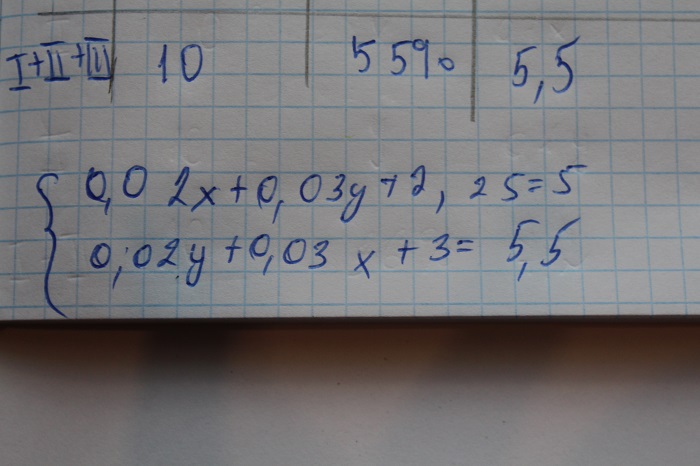 I+II+III 10 55% 5,5
0,02x+0,03y+2,25=5
0,02y+0,03x+3=5,5